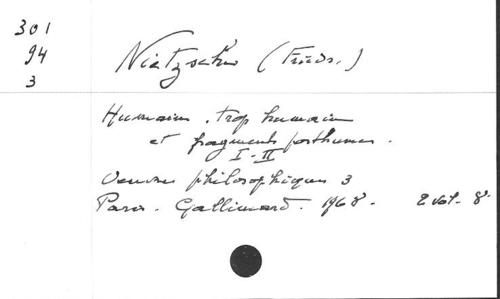 301
94
3
Nietzsche (Friedr.)
Humain, trop humain
et fragments posthumes.
I-II
Oeuvres philosophiques 3
Paris. Gallimard. 1968. 2 vol. 8°